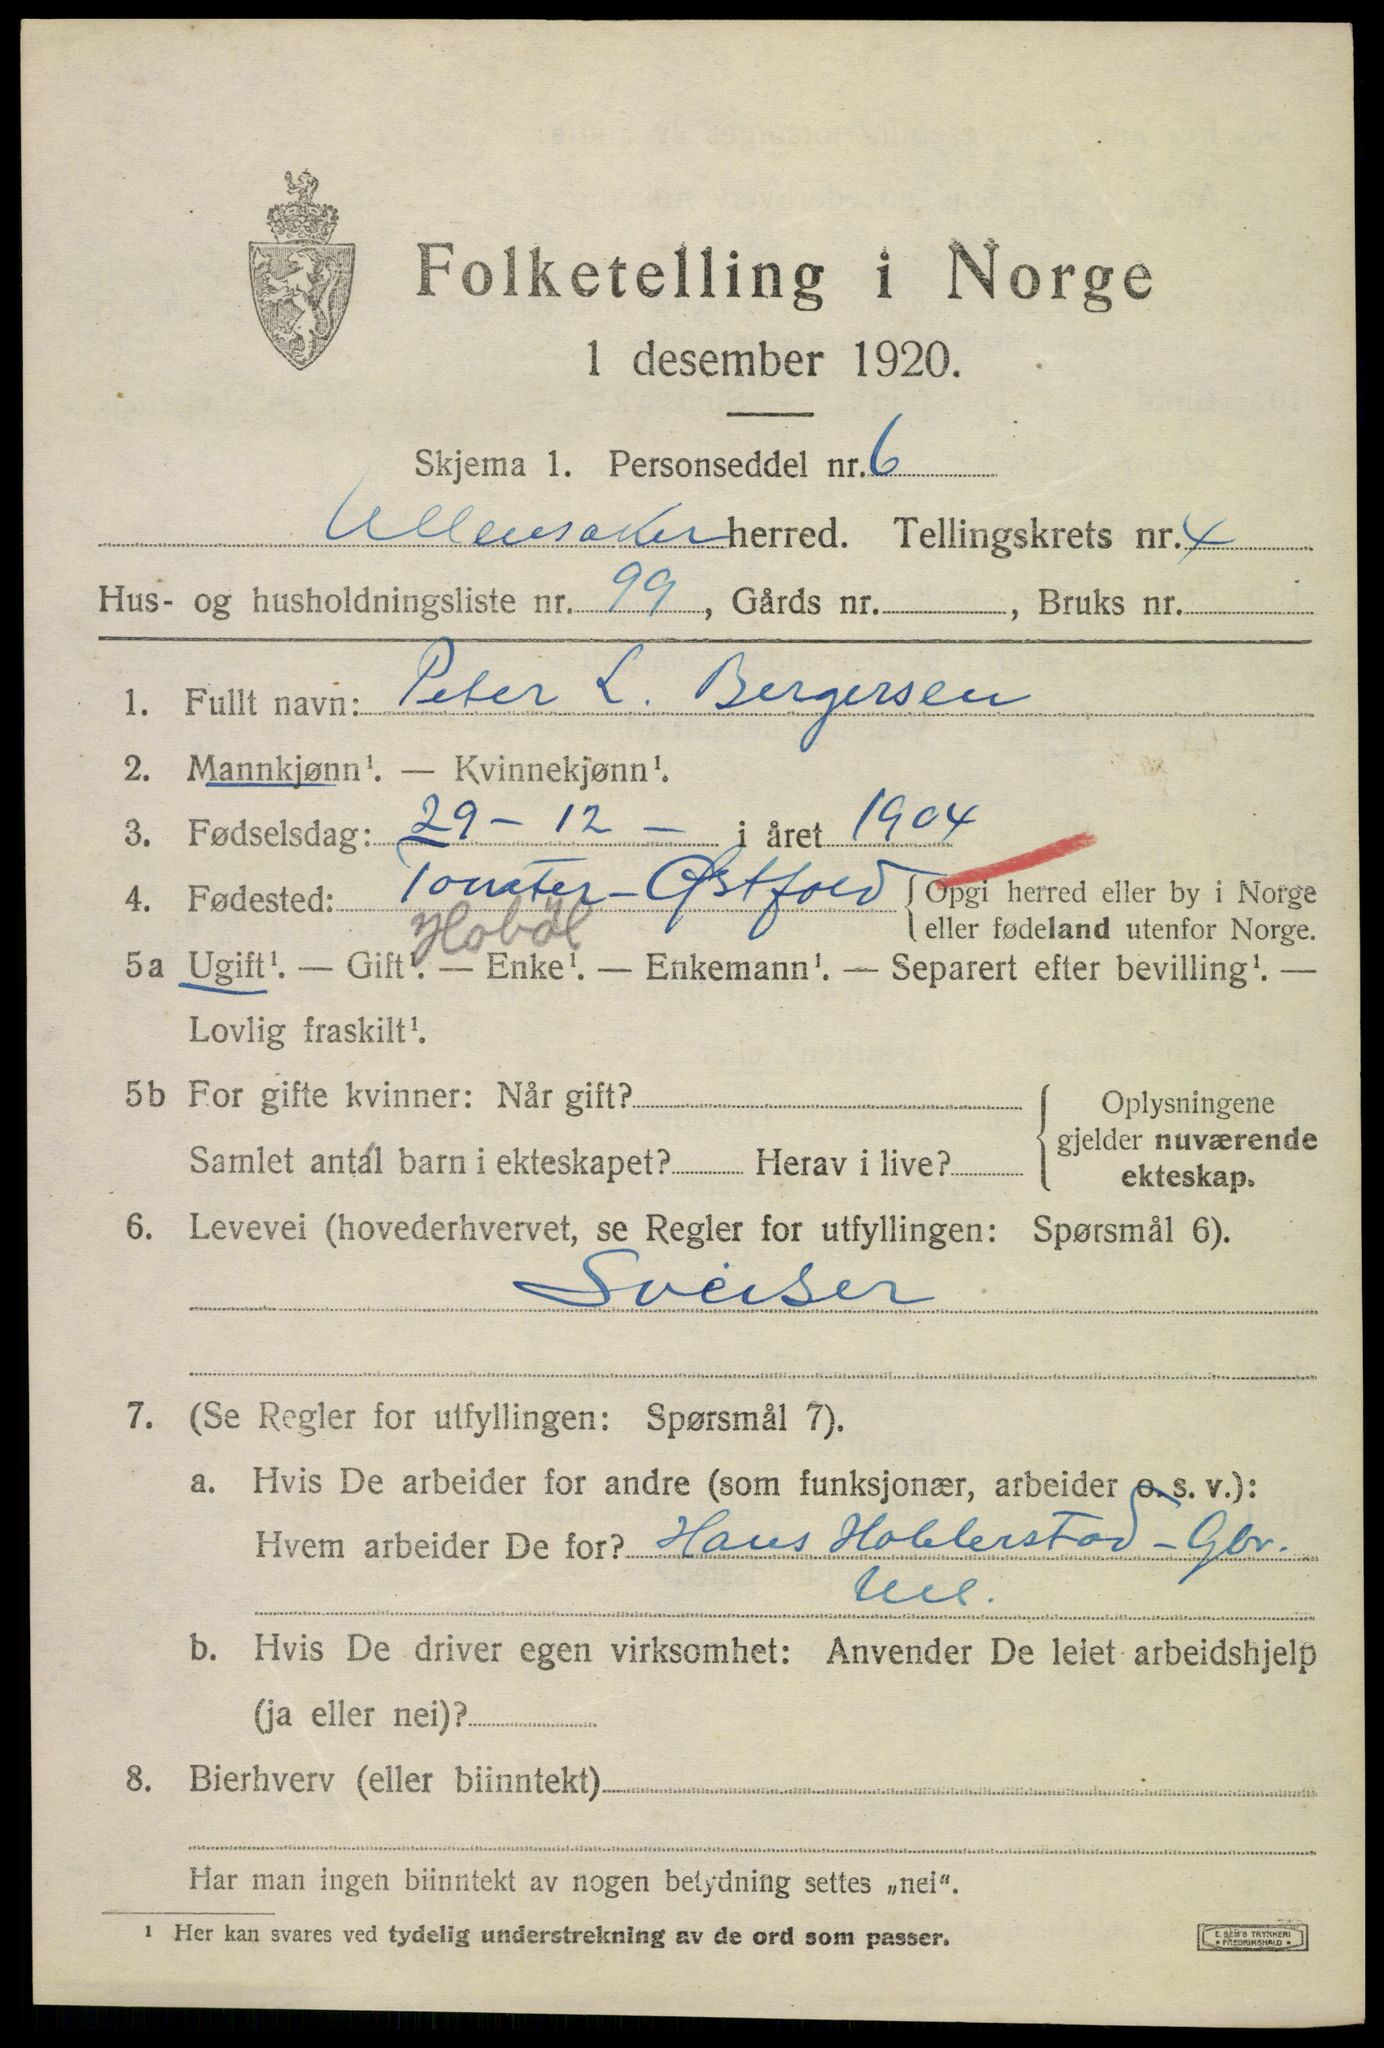 Folketelling i Norge
1 desember 1920.
Skjema 1. Personseddel nr. 6
Ullensaker herred. Tellingskrets nr. 4
Hus- og husholdningsliste nr. 99, Gårds nr. , Bruks nr.
1. Fullt navn: Peter L. Bergersen
2. Mannkjønn¹. — Kvinnekjønn¹.
3. Fødselsdag: 29 – 12 – i året 1904
4. Fødested: Tomter – Østfold { Opgi herred eller by i Norge
Hobøl eller fødeland utenfor Norge.
5a Ugift¹. — Gift¹. — Enke¹. — Enkemann¹. — Separert efter bevilling¹. —
Lovlig fraskilt¹.
5b For gifte kvinner: Når gift? { Oplysningene
gjelder nuværende
Samlet antal barn i ekteskapet? Herav i live?
ekteskap.
6. Levevei (hovederhvervet, se Regler for utfyllingen: Spørsmål 6).
Sveiser
7. (Se Regler for utfyllingen: Spørsmål 7).
a. Hvis De arbeider for andre (som funksjonær, arbeider o. s. v.):
Hvem arbeider De for? Hans – Gbr.
Ull.
b. Hvis De driver egen virksomhet: Anvender De leiet arbeidshjelp
(ja eller nei)?
8. Bierhverv (eller biinntekt)
Har man ingen biinntekt av nogen betydning settes „nei“.
¹ Her kan svares ved tydelig understrekning av de ord som passer.
E. SEM'S TRYKKERI
• FREDRIKSHALD •